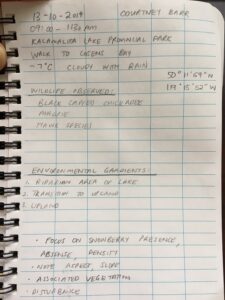 13-10-2019 COURTNEY BARR
09:00 - 1130 AM
KALAMALKA LAKE PROVINCIAL PARK
WALK TO COSENS BAY
~7°C CLOUDY WITH RAIN
50° 11'59" N
WILDLIFE OBSERVED: 119° 15'52" W
BLACK CAPPED CHICKADEE
MAGPIE
HAWK SPECIES
ENVIRONMENTAL GRADIENTS:
1. RIPARIAN AREA OF LAKE
2. TRANSITION TO UPLAND
3. UPLAND
• FOCUS ON SNOWBERRY PRESENCE,
ABSENSE, DENSITY
• NOTE ASPECT, SLOPE
• ASSOCIATED VEGETATION
• DISTURBANCE